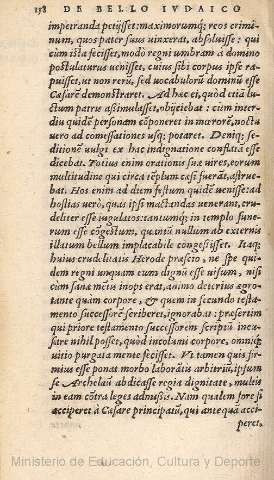 158 DE BELLO IVDAICO
imperanda petijsset: maximorumq́; reos crimi-
num, quos pater suus uinxerat, absoluisse: qui
cùm ista fecisset, modò regni umbram à domino
postulaturus uenisset, cuius sibi corpus ipse ra-
puisset, ut non rerũ, sed uocabulorũ dominũ esse
Cæsarẽ demonstraret. Ad hæc ei, quòd etiã lu-
ctum patris assimulasset, obijciebat: cùm inter-
diu quidẽ personam cõponeret in mœrorẽ, noctu
uerò ad comessationes usq; potaret. Deniq; se-
ditionẽ uulgi ex hac indignatione conflatã esse
dicebat. Totius enim orationis suæ uires, eorum
multitudine qui circa tẽplum cæsi fuerãt, astrue-
bat. Hos enim ad diem festum quidẽ uenisse: ad
hostias uerò, quas ipsi mactandas uenerant, cru-
deliter esse iugulatos: tantumq́; in templo fune-
rum esse cõgestum, quantũ nullum ab externis
illatum bellum implacabile congessisset. Itaq́;
huius crudelitatis Herode præscio, ne spe qui-
dem regni unquam eum dignũ esse uisum, nisi
cùm sana mẽtis inops erat, animo deterius ægro-
tante quàm corpore, & quem in secundo testa-
mento successorẽ scriberet, ignorabat: præsertim
qui priore testamento successorem scriptũ incu-
sare nihil posset, quod incolumi corpore, omniq́;
uitio purgata mente fecisset. Vt tamen quis fir-
mius esse ponat morbo laborãtis arbitriũ, ipsum
se Archelaũ abdicasse regia dignitate, multis
in eam cõtra leges admissis. Nam qualem fore si
acciperet à Cæsare principatũ, qui ante quã acci-
peret,
Ministerio de Educación, Cultura y Deporte